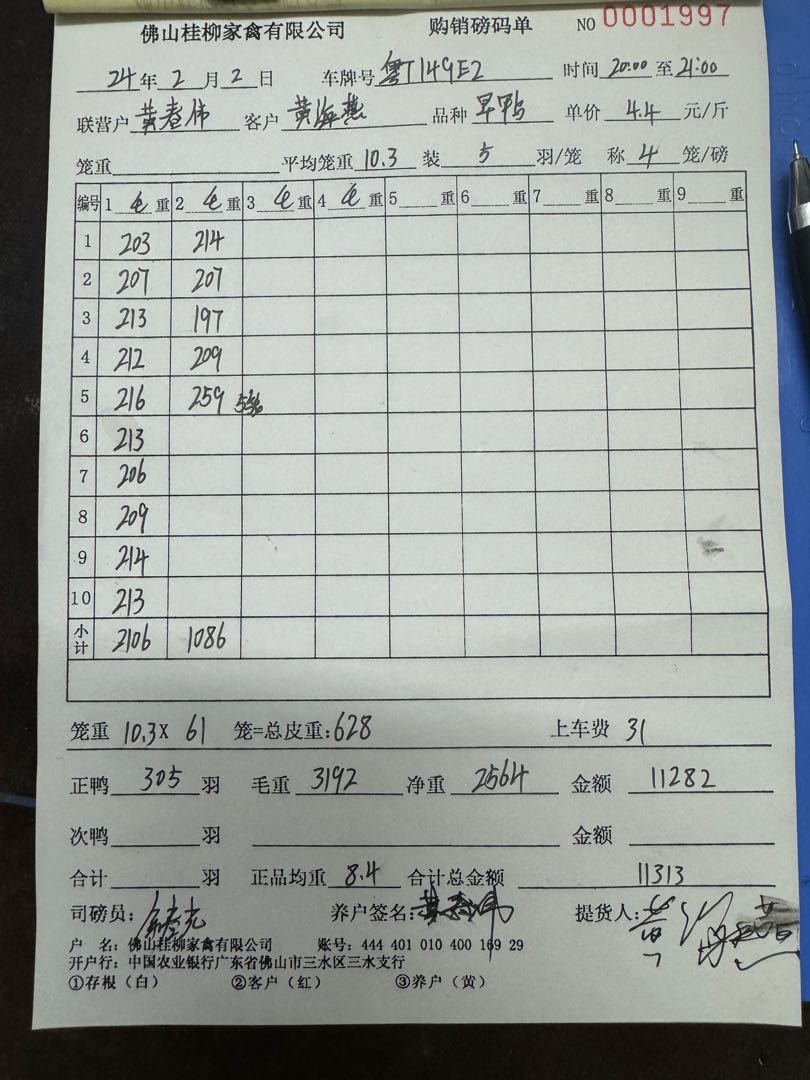 佛山桂柳家禽有限公司 购销磅码单 NO 0001997
24年2月2日 车牌号 粤T149E2 时间 20:00至21:00
联营户 黄春伟 客户 黄海燕 品种 早鸭 单价 4.4 元/斤
笼重 平均笼重 10.3 装 5 羽/笼 称 4 笼/磅
编号 1 毛 重 2 毛 重 3 毛 重 4 毛 重 5 重 6 重 7 重 8 重 9 重
1 203 214
2 207 207
3 213 197
4 212 209
5 216 259 5笼
6 213
7 206
8 209
9 214
10 213
小计 2106 1086
笼重 10.3X 61 笼=总皮重:628 上车费 31
正鸭 305 羽 毛重 3192 净重 2564 金额 11282
次鸭 羽 金额
合计 羽 正品均重 8.4 合计总金额 11313
司磅员: 养户签名:黄春伟 提货人:黄海燕
户 名: 佛山桂柳家禽有限公司 账号: 444 401 010 400 169 29
开户行: 中国农业银行广东省佛山市三水区三水支行
①存根（白） ②客户（红） ③养户（黄）